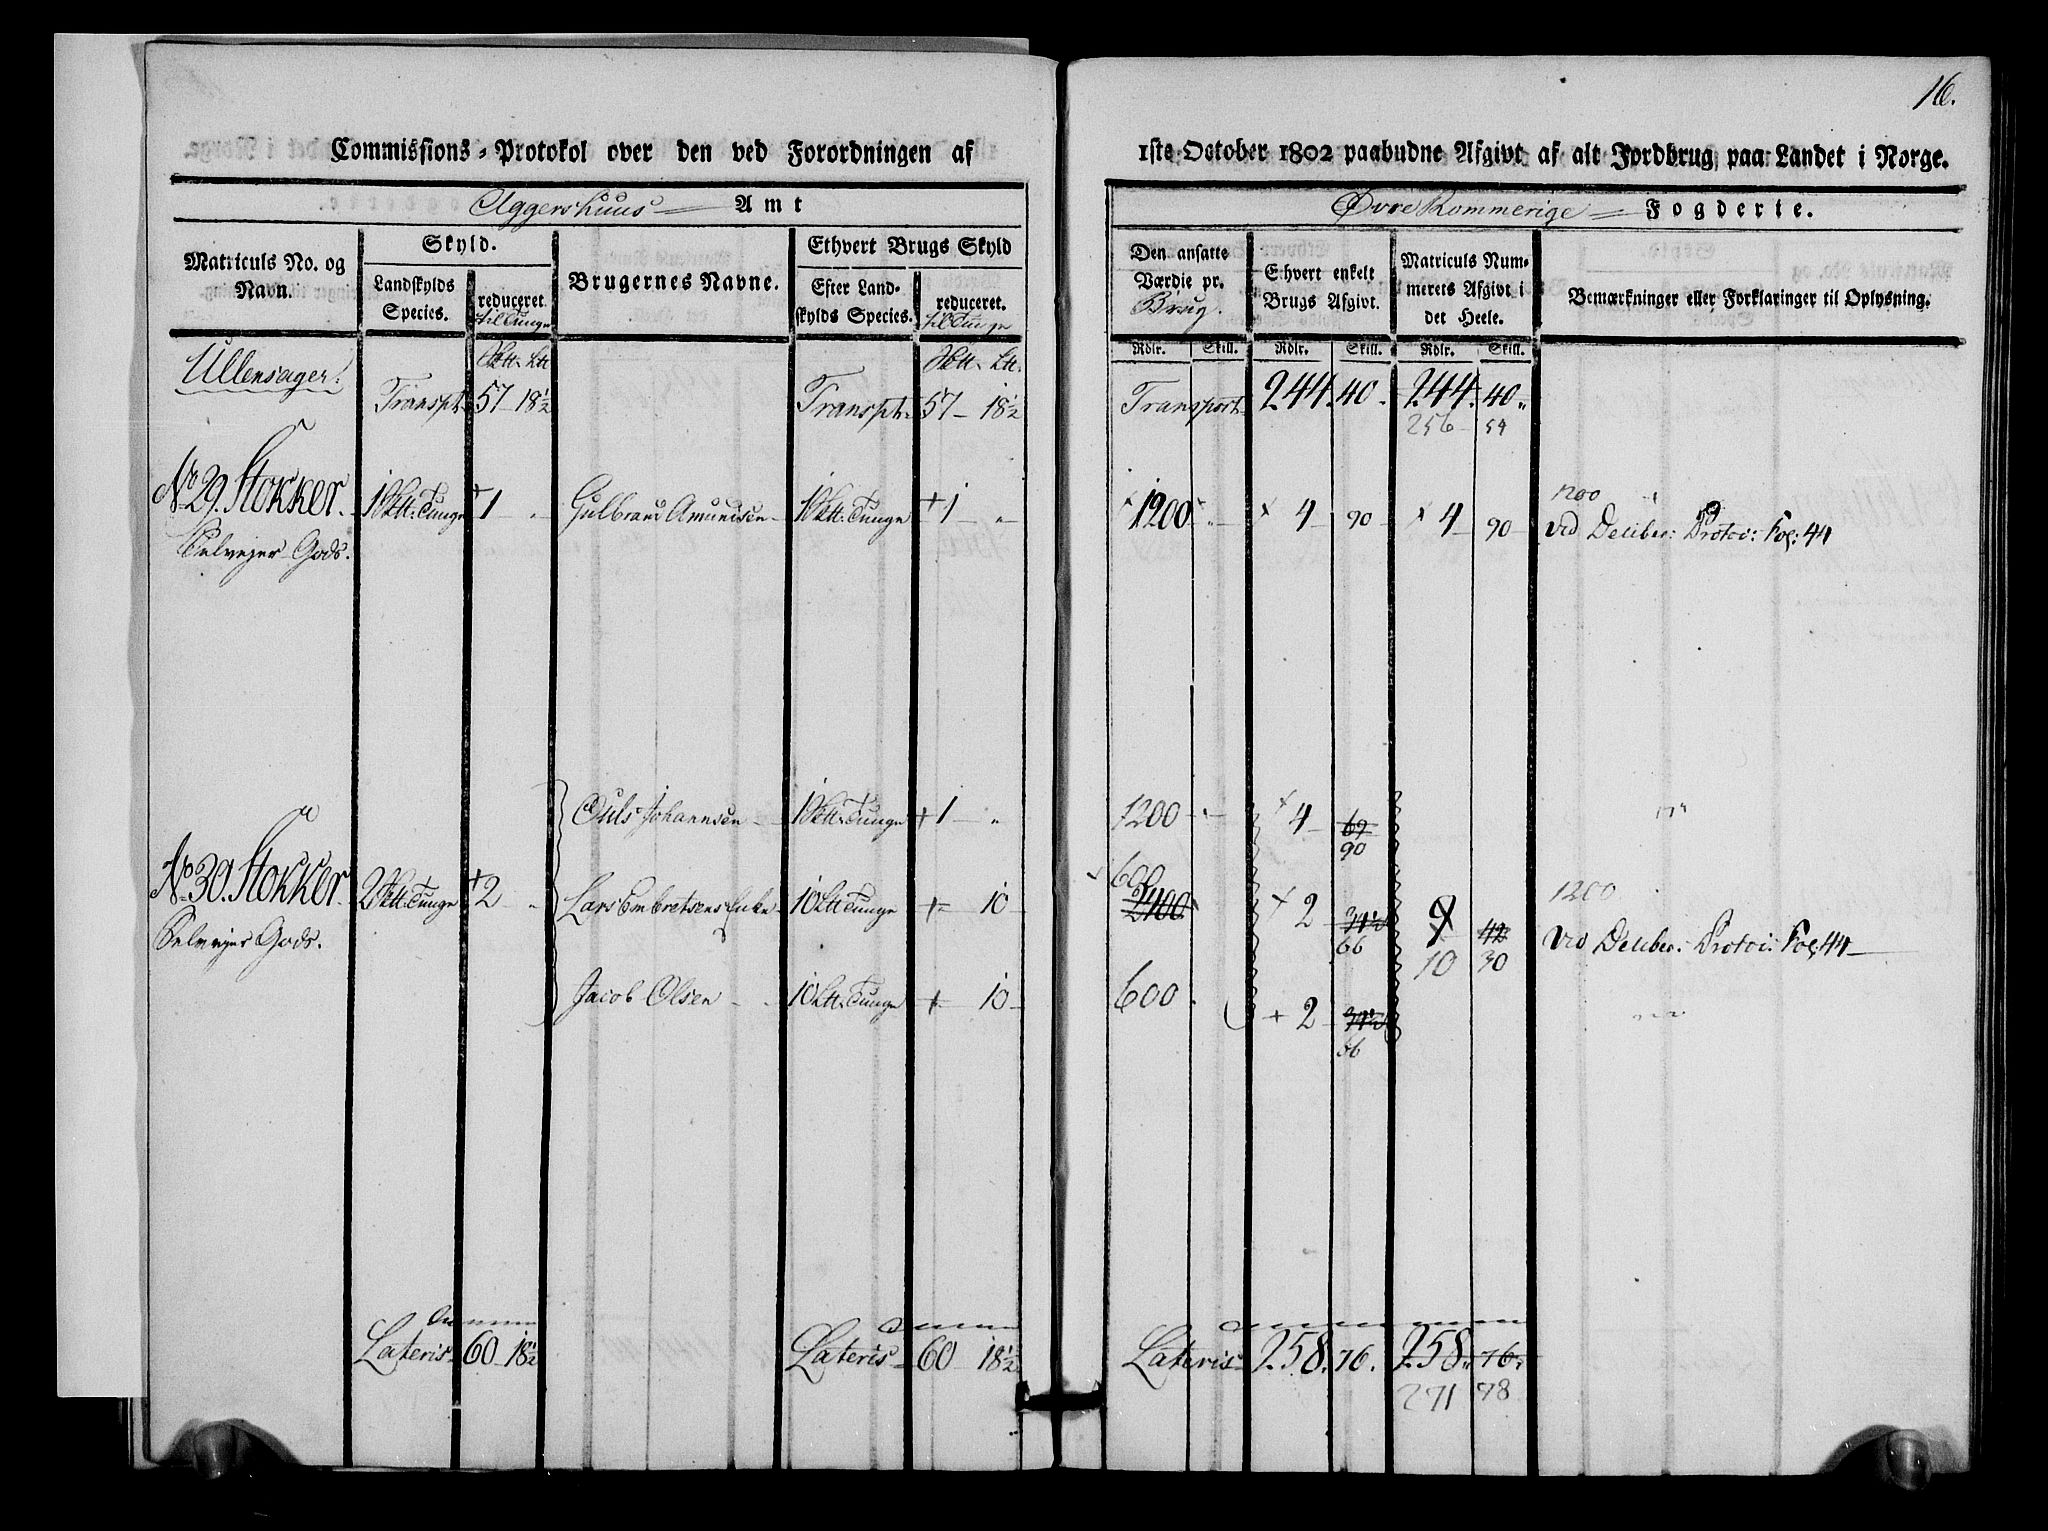 16.
Commissions-Protokol over den ved Forordningen af
1ste October 1802 paabudne Afgivt af alt Jordbrug paa Landet i Norge.
Aggershuus Amt
Øvre Rommerige Fogderie.
Matriculs No. og Navn.
Skyld.
Landskylds Species.
reduceret til Tunge
Brugernes Navne.
Ethvert Brugs Skyld
Efter Landskylds Species.
reduceret. til Tunge
Den ansatte Værdie pr. Brug.
Ethvert enkelt Brugs Afgivt.
Matriculs Nummerets Afgivt i det Heele.
Bemærkninger eller Forklaringer til Oplysning.
Rdlr. Skill. Rdlr. Skill. Rdlr. Skill.
Ullensager.
Transpt. 57 - 18½ Transpt. 57 - 18½ Transport 244. 40. 244. 40.
256 - 54
No 29. Stokker. 1 Sktt: Tunge + 1 „ Gulbrand Amundsen 1 Sktt: Tunge + 1 „ 1200 4 90 4 90
1200
Vid Deliber: Protoc: Fol: 44
Selvejer Gods.
Johannsen 1 Sktt: Tunge + 1 „ 1200 4 69
90
No 30. Stokker 2 Sktt: Tunge + 2 „ Lars Embretsens Enke 10 Ltt: Tunge + 10 2400 2
600
66
9 42
10 30
1200
Vid Deliber: Protoc: Fol: 44
Selvejer Gods.
Jacob Olsen 10 Ltt: Tunge + 10 600 + 2
66
Lateris 60 18½ Lateris 60 18½ Lateris 258. 76. 258. 76.
271 78